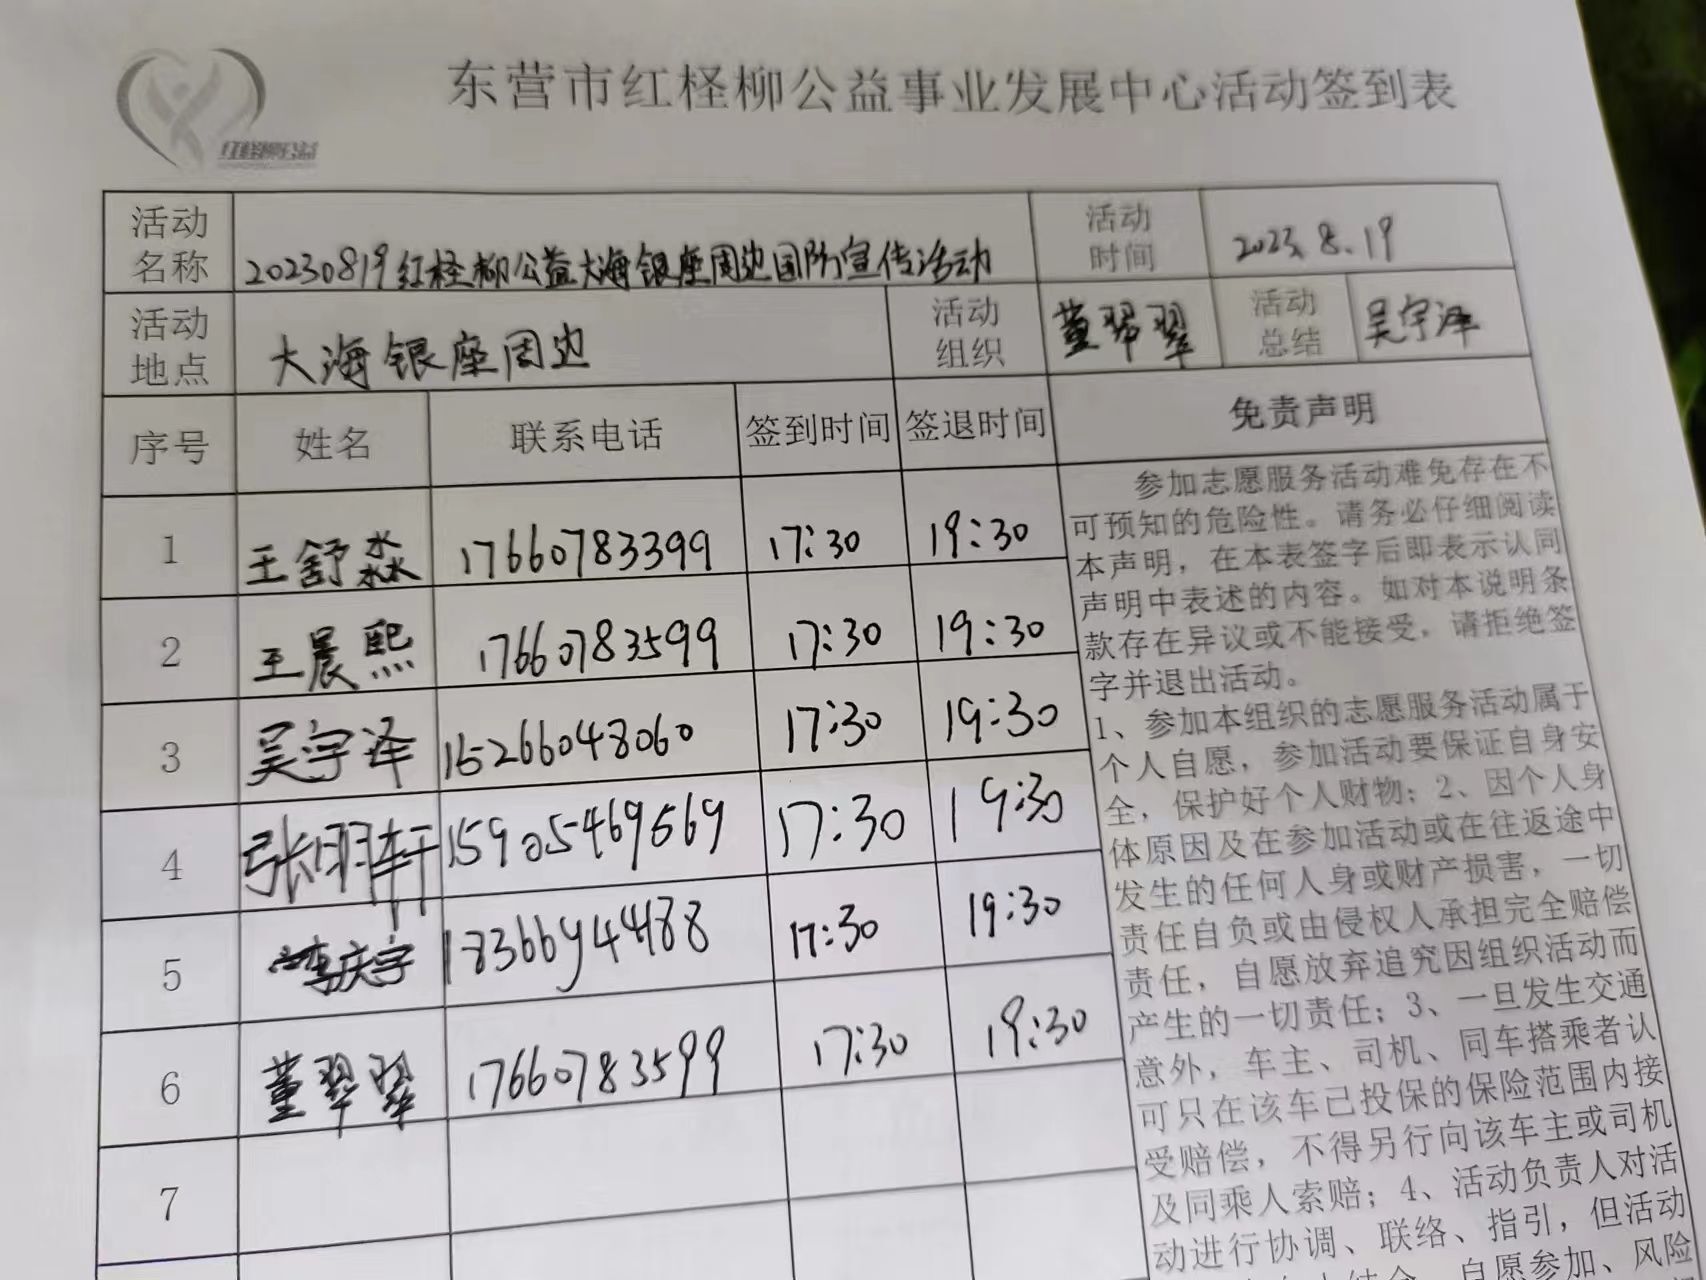 东营市红柽柳公益事业发展中心活动签到表
红柽柳公益
活动名称 20230819红柽柳公益大海银座周边国防宣传活动 活动时间 2023.8.19
活动地点 大海银座周边 活动组织 董翠翠 活动总结 吴宇泽
序号 姓名 联系电话 签到时间 签退时间 免责声明
1 王舒淼 17660783399 17:30 19:30
2 王晨熙 17660783599 17:30 19:30
3 吴宇泽 15266048060 17:30 19:30
4 张明轩 15905469669 17:30 19:30
5 李庆宇 18366944188 17:30 19:30
6 董翠翠 17660783599 17:30 19:30
7
参加志愿服务活动难免存在不
可预知的危险性。请务必仔细阅读
本声明，在本表签字后即表示认同
声明中表述的内容。如对本说明条
款存在异议或不能接受，请拒绝签
字并退出活动。
1、参加本组织的志愿服务活动属于
个人自愿，参加活动要保证自身安
全，保护好个人财物；2、因个人身
体原因及在参加活动或在往返途中
发生的任何人身或财产损害，一切
责任自负或由侵权人承担完全赔偿
责任，自愿放弃追究因组织活动而
产生的一切责任；3、一旦发生交通
意外，车主、司机、同车搭乘者认
可只在该车已投保的保险范围内接
受赔偿，不得另行向该车主或司机
及同乘人索赔；4、活动负责人对活
动进行协调、联络、指引，但活动
自愿参加、风险